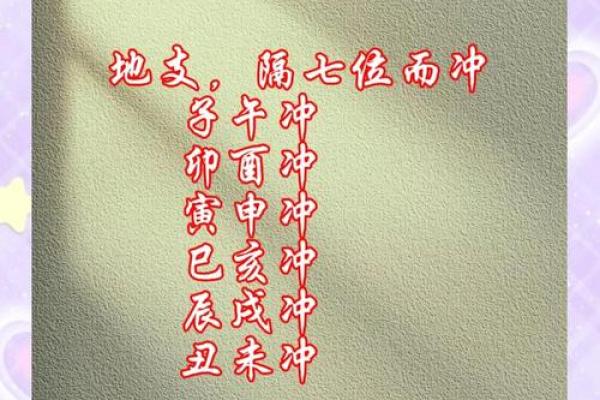 地支，隔七位而冲
子午冲
卯酉冲
寅申冲
巳亥冲
辰戌冲
丑未冲